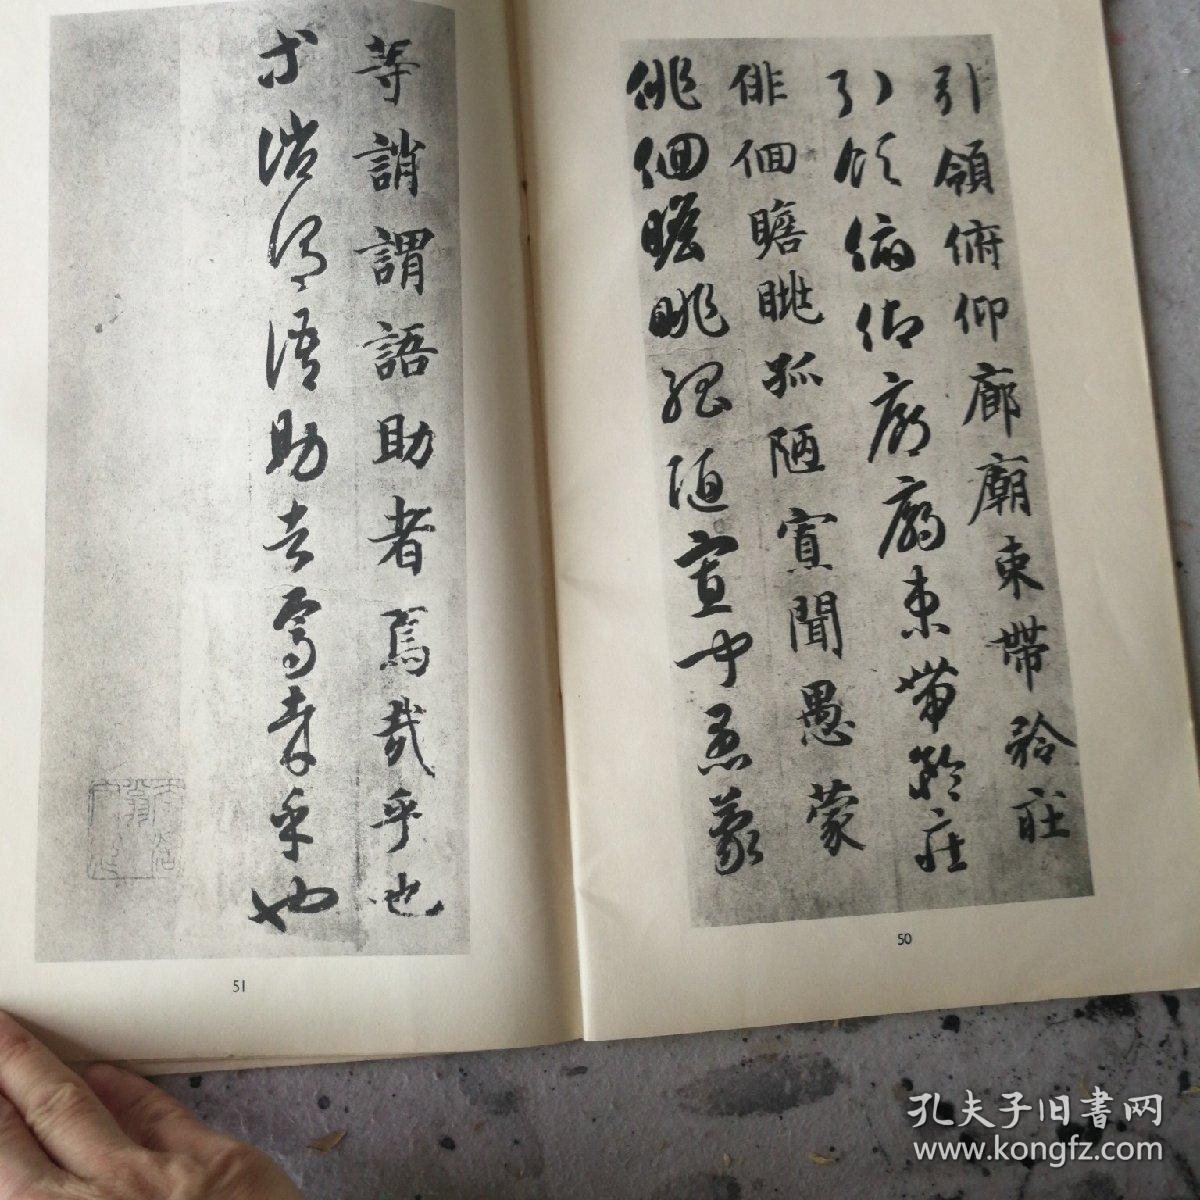 引領俯仰廊廟束帶矜莊
引領俯仰廊廟束帶矜莊
俳佪瞻眺孤陋寡聞愚蒙
俳佪瞻眺孤陋寡聞愚蒙
50
等誚謂語助者焉哉乎也
等誚謂語助者焉哉乎也
51
孔夫子旧书网
www.kongfz.com